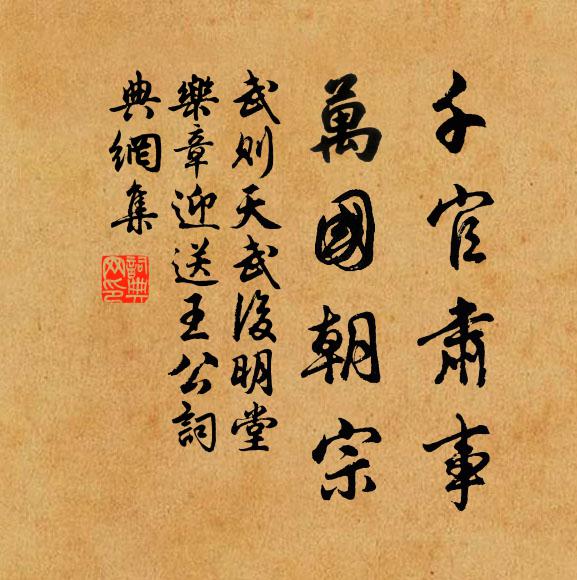 千官肅事
萬國朝宗
武則天武後明堂
樂章迎送王公詞
典網集
詞典網印